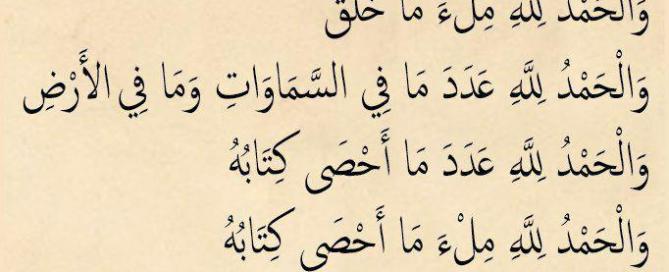 وَالْحَمْدُ لِلَّهِ مِلْءَ مَا خَلَقَ
وَالْحَمْدُ لِلَّهِ عَدَدَ مَا فِي السَّمَاوَاتِ وَمَا فِي الأَرْضِ
وَالْحَمْدُ لِلَّهِ عَدَدَ مَا أَحْصَى كِتَابُهُ
وَالْحَمْدُ لِلَّهِ مِلْءَ مَا أَحْصَى كِتَابُهُ